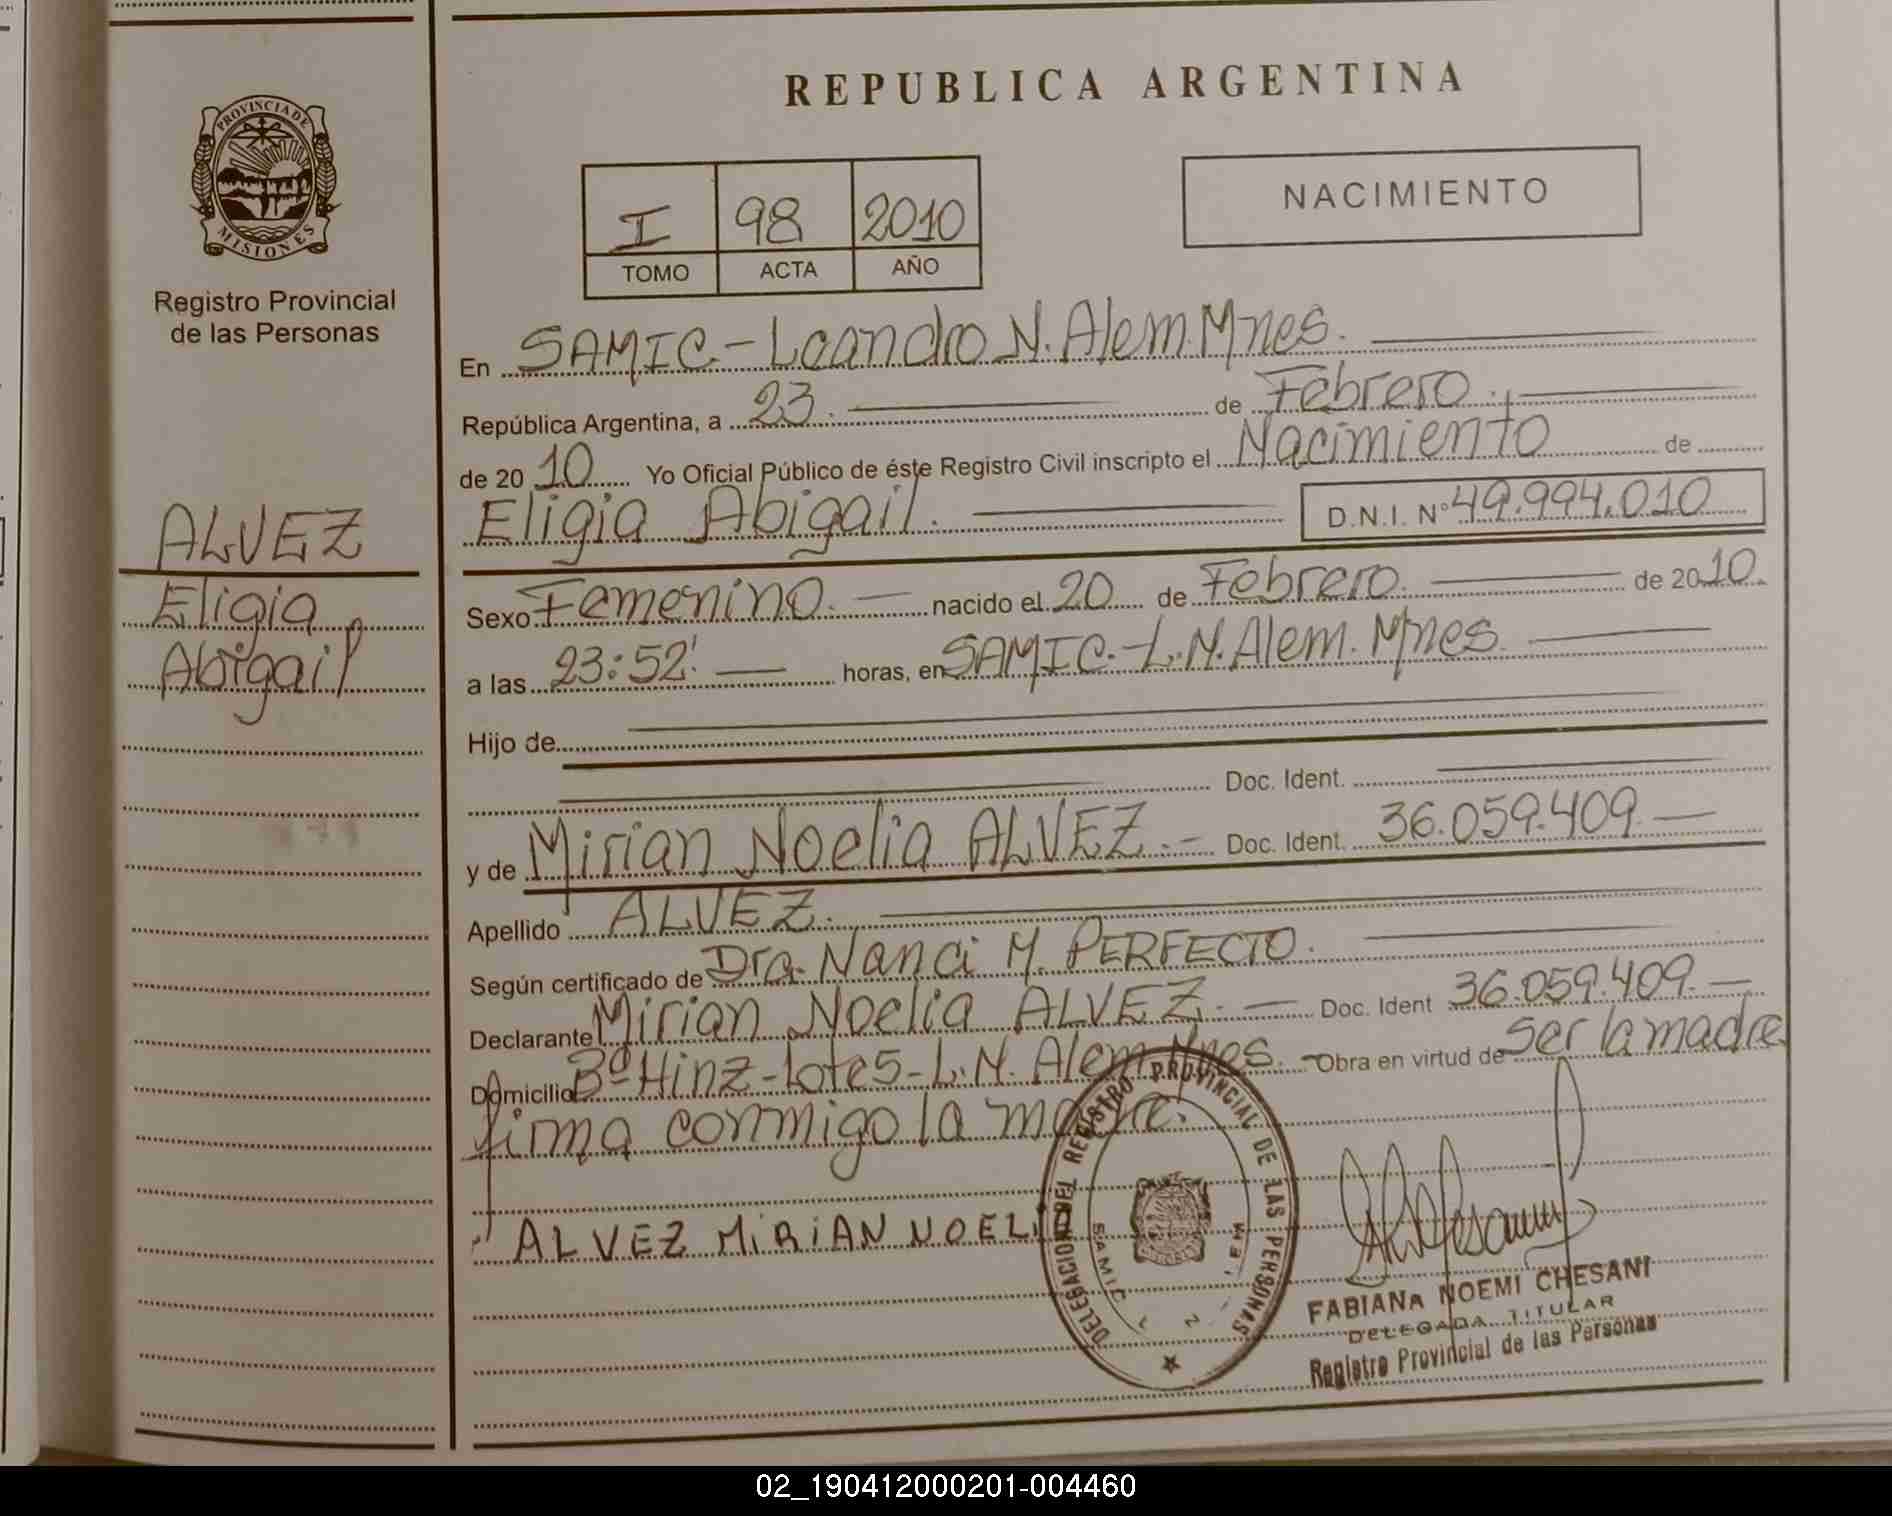 PROVINCIA DE
MISIONES
Registro Provincial
de las Personas
ALVEZ
Eligia
Abigail
REPUBLICA ARGENTINA
I 98 2010
TOMO ACTA AÑO
NACIMIENTO
En SAMIC.-Leandro N. Alem. Mnes.
República Argentina, a 23. de Febrero.
de 20 10 Yo Oficial Público de éste Registro Civil inscripto el Nacimiento de
Eligia Abigail. D.N.I. Nº 49.994.010
Sexo Femenino. nacido el 20 de Febrero. de 20 10
a las 23:52' horas, en SAMIC.-L.N. Alem. Mnes.
Hijo de
Doc. Ident.
y de Mirian Noelia ALVEZ.- Doc. Ident. 36.059.409.
Apellido ALVEZ.
Según certificado de Dra. Nanci M. PERFECTO.
Declarante Mirian Noelia ALVEZ. Doc. Ident 36.059.409.
Domicilio Bº Hinz-lote 5-L.N. Alem. Mnes. Obra en virtud de ser la madre
firma conmigo la madre.
ALVEZ MIRIAN NOELIA
DELEGACION DEL REGISTRO PROVINCIAL DE LAS PERSONAS
SAMIC L N
FABIANA NOEMI CHESANI
DELEGADA TITULAR
Registro Provincial de las Personas
02_190412000201-004460